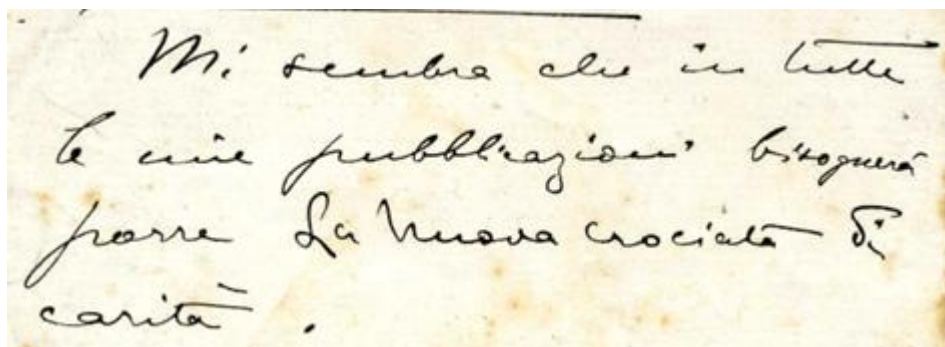 Mi sembra che in tutte
le mie pubblicazioni bisognerà
porre La Nuova crociata di
carità.